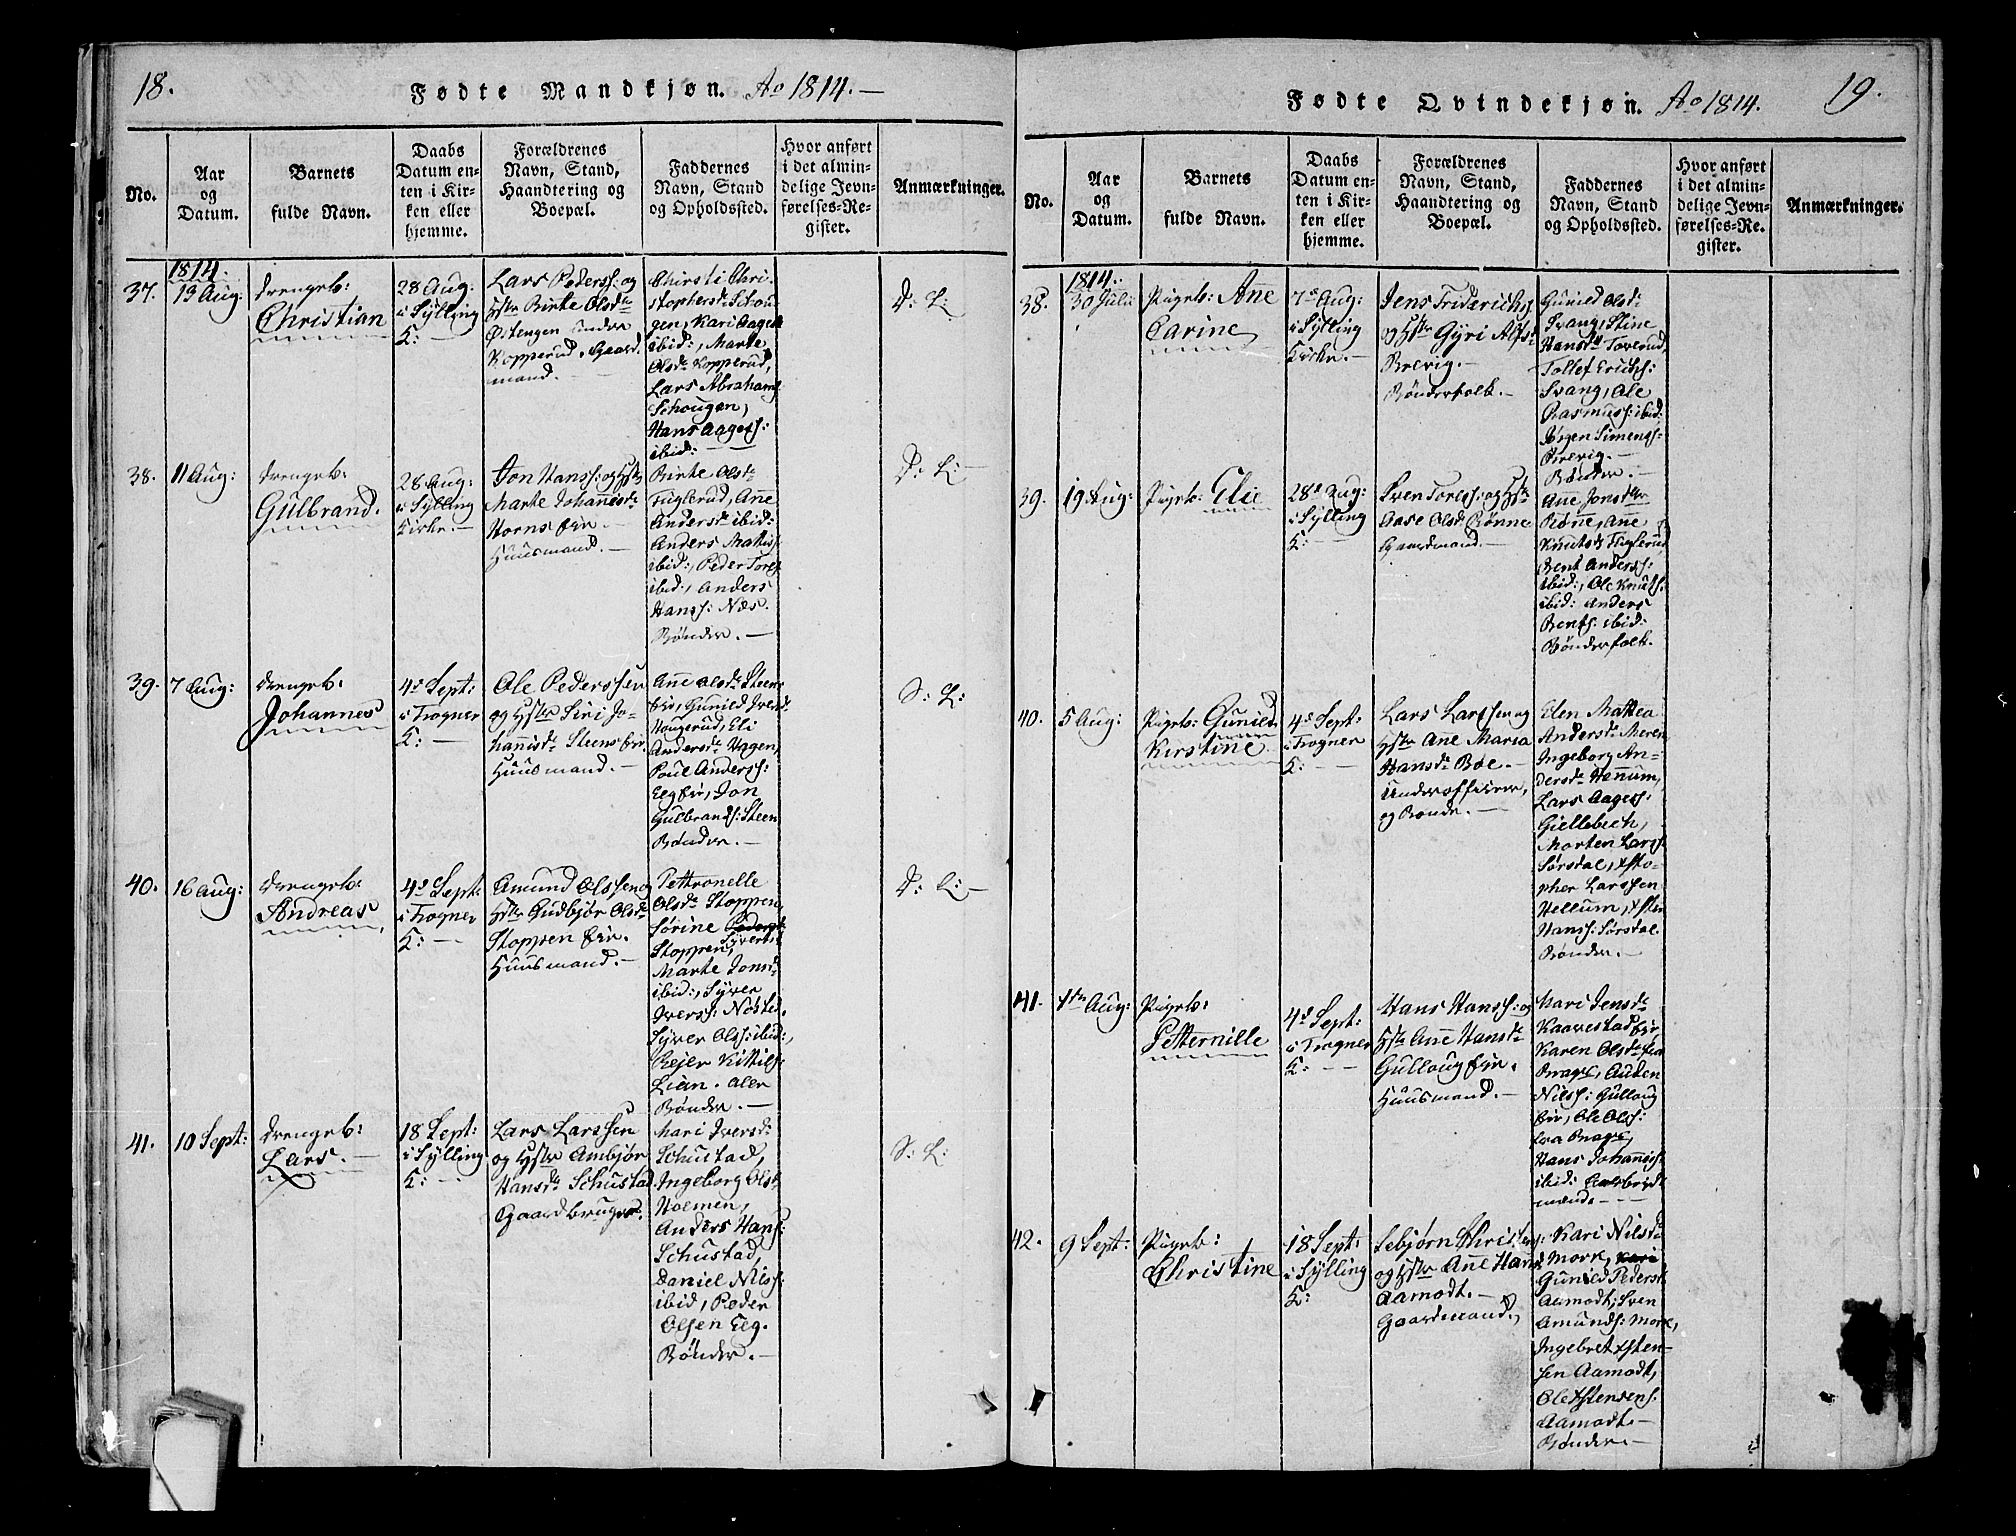 18.
Fødte Mandkjøn. Ao 1814.
No.
Aar
og
Datum.
Barnets
fulde Navn.
Daabs
Datum en-
ten i Kir-
ken eller
hjemme.
Forældrenes
Navn, Stand,
Haandtering og
Boepæl.
Faddernes
Navn, Stand
og Opholdssted.
Hvor anført
i det almin-
delige Jevn-
førelses-Re-
gister.
Anmærkninger.
1814.
37.
13 Aug:
Drengeb:
Christian
28 Aug:
i Sylling
K:
Lars Pederss: og
Hstr Birte Olsdr
Kopperud. Gaard-
mand.
Chirsti Chri-
stophersdr Schou-
gen, Kari Aagesdr
ibid:, Marte
Olsdr Kopperud,
Lars Abrahams
Schougen,
Hans Aagess:
ibid:
D: L:
38.
11 Aug:
Drengeb:
Gulbrand.
28 Aug:
i Sylling
Kirke.
Jon Hanss: og Hstr
Marte Johannesdr
Horns Eie.
Huusmand.
Birte Olsdr
Fuglerud, Anne
Andersdr ibid:
Anders Mattis
ibid:, Peder Tores
ibid:, Anders
Hanss: Næs.
Bønder.
D: L:
39.
7 Aug:
Drengeb:
Johannes
4d Sept:
i Trogner
K:
Ole Pederssen
og Hstr Siri Jo-
hannisdr Steens Eie.
Huusmand.
Anne Olsdr Steens
Eie, Gunild Iversdr
Hougerud, Eli
Andersdr Hagen,
Poul Anderss:
Elg Eie, Jon
Gulbrands: Steen
Bønder.
S: L:
40.
16 Aug:
Drengeb:
Andreas
4d Sept:
i Trogner
K:
Amund Olssen og
Hstr Gudbjør Olsdr
Stoppen Eie.
Huusmand.
Pettronelle
Olsdr Stoppen,
Sørine Pedersdr
Syvertsdr
Stoppen,
Marte Jonsdr
ibid:, Syver
Iverss: Nøsted,
Syver Olss: ibid:,
Rejer Kittils:
Lian. Aler
Bønder.
D: L:
41.
10 Sept:
Drengeb:
Lars.
18 Sept:
i Sylling
K:
Lars Larssen
og Hstr Ambjør
Hansdr Schustad
Gaardbruger.
Mari Iversd:
Schustad,
Ingeborg Olsdr
Holmen,
Anders Hans:
Schustad
Daniel Nilss:
ibid, Peder
Olsen Elg.
Bønder.
S: L:
19.
Fødte Qvindekjøn. Ao 1814.
No.
Aar
og
Datum.
Barnets
fulde Navn.
Daabs
Datum en-
ten i Kir-
ken eller
hjemme.
Forældrenes
Navn, Stand,
Haandtering og
Boepæl.
Faddernes
Navn, Stand
og Opholdssted.
Hvor anført
i det almin-
delige Jevn-
førelses-Re-
gister.
Anmærkninger.
1814.
38.
30 Juli
Pigeb: Ane
Carine
7d Aug:
i Sylling
Kirke.
Jens Friderichs
og Hstr Gyri Alfsdr
Brevig.
Bønderfolk.
Gunild Olsdr
Svang, Stine
Hansdr Toverud,
Tollef Erichs:
Svang, Ole
Rasmuss: ibid:
Jørgen Simens:
Brevig.
Bønder.
39.
19 Aug:
Pigeb: Elie
28d Aug:
i Sylling
K:
Sven Toress: og Hstr
Aase Olsdr Rønne
Gaardmand.
Ane Jonsdtr
Rønne, Ane
Knutsdr Fuglerud
Bent Anderss:
ibid:, Ole Knuts:
ibid: Anders
Bents: ibid:
Bønderfolk.
40.
5 Aug:
Pigeb: Gunild
Kirstine
4d Sept:
i Trogner
K:
Lars Larssen og
Hstr Ane Maria
Hansdr Bøe.
Underofficeer,
og Bonde.
Elen Mattea
Andersdr Meren
Ingeborg An-
dersdr Henum,
Lars Aagess:
Giellebech,
Morten Larss:
Sørsdal, Xsto-
pher Larssen
Hellum, Xsten
Hanss: Sørsdal.
Bønder.
41.
1ste Aug:
Pigeb:
Petternille
4d Sept:
i Trogner
K:
Hans Hanss: og
Hstr Ane Hansdr
Gulloug Eie.
Huusmand.
Mari Jensdr
Kaarestad Eie
Karen Olsdr fra
Brages, Auden
Nilss: Gulloug
Eie, Ole Olss:
fra Brages,
Hans Johaniss:
ibid:
mænd.
42.
9 Sept:
Pigeb:
Christine
18 Sept:
i Sylling
K:
Lebjørn Christens:
og Hstr Ane Hansdr
Aamodt.
Gaardmand.
Kari Nilsdr
Mork, Kari
Gunild Pedersdr
Aamodt, Sven
Amunds: Mork,
Ingebret Xsten-
sen Aamodt,
Ole Xstensens:
Aamodt.
Bønder.